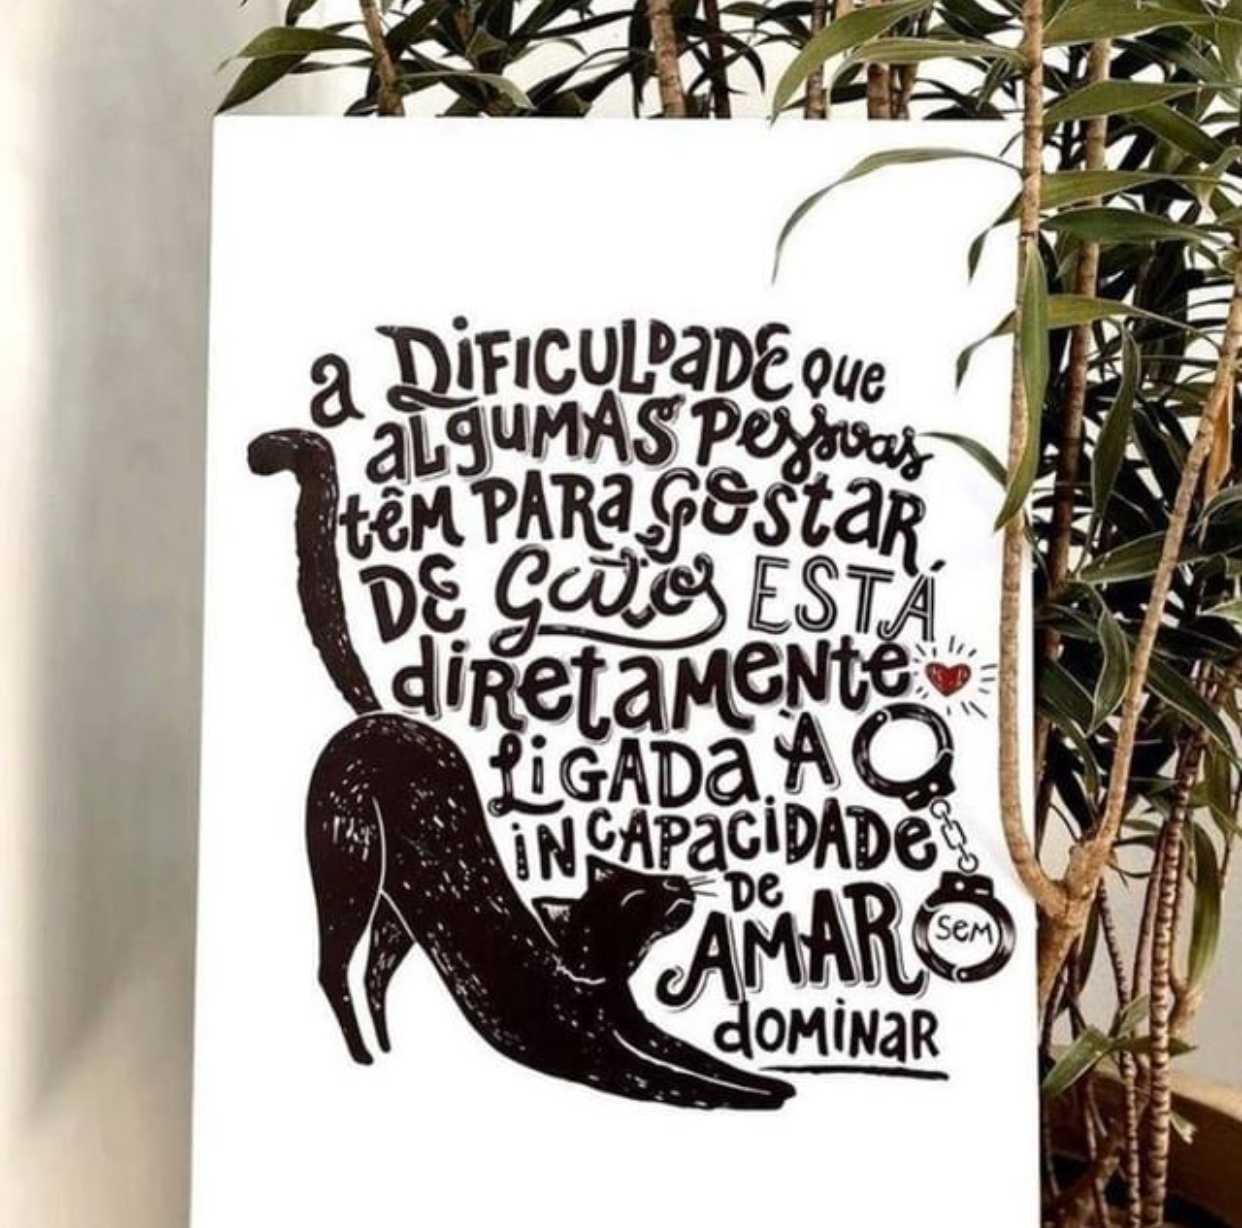 a DIFICULDADE que
ALGUMAS Pessoas
têm PARA GOStaR
DE Gatos ESTÁ
diRetaMeNte
LiGADa À
iNCAPaciDADe
De
AMAR SeM
dOMiNaR